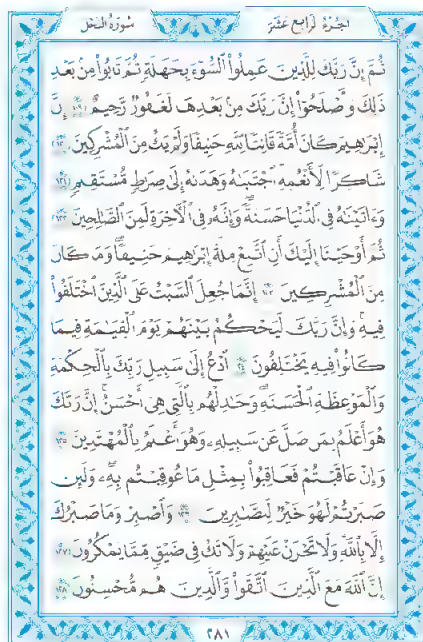 الجزء الرابع عشر
سورة النحل
ثُمَّ إِنَّ رَبَّكَ لِلَّذِينَ عَمِلُوا۟ ٱلسُّوٓءَ بِجَهَـٰلَةٍ ثُمَّ تَابُوا۟ مِنۢ بَعْدِ
ذَٰلِكَ وَأَصْلَحُوٓا۟ إِنَّ رَبَّكَ مِنۢ بَعْدِهَا لَغَفُورٌ رَّحِيمٌ ١١٩ إِنَّ
إِبْرَٰهِيمَ كَانَ أُمَّةً قَانِتًا لِّلَّهِ حَنِيفًا وَلَمْ يَكُ مِنَ ٱلْمُشْرِكِينَ ١٢٠
شَاكِرًا لِّأَنْعُمِهِ ٱجْتَبَىٰهُ وَهَدَىٰهُ إِلَىٰ صِرَٰطٍ مُّسْتَقِيمٍ ١٢١
وَءَاتَيْنَـٰهُ فِى ٱلدُّنْيَا حَسَنَةً وَإِنَّهُۥ فِى ٱلْـَٔاخِرَةِ لَمِنَ ٱلصَّـٰلِحِينَ ١٢٢
ثُمَّ أَوْحَيْنَآ إِلَيْكَ أَنِ ٱتَّبِعْ مِلَّةَ إِبْرَٰهِيمَ حَنِيفًا وَمَا كَانَ
مِنَ ٱلْمُشْرِكِينَ ١٢٣ إِنَّمَا جُعِلَ ٱلسَّبْتُ عَلَى ٱلَّذِينَ ٱخْتَلَفُوا۟
فِيهِ وَإِنَّ رَبَّكَ لَيَحْكُمُ بَيْنَهُمْ يَوْمَ ٱلْقِيَـٰمَةِ فِيمَا
كَانُوا۟ فِيهِ يَخْتَلِفُونَ ١٢٤ ٱدْعُ إِلَىٰ سَبِيلِ رَبِّكَ بِٱلْحِكْمَةِ
وَٱلْمَوْعِظَةِ ٱلْحَسَنَةِ وَجَـٰدِلْهُم بِٱلَّتِى هِىَ أَحْسَنُ إِنَّ رَبَّكَ
هُوَ أَعْلَمُ بِمَن ضَلَّ عَن سَبِيلِهِۦ وَهُوَ أَعْلَمُ بِٱلْمُهْتَدِينَ ١٢٥
وَإِنْ عَاقَبْتُمْ فَعَاقِبُوا۟ بِمِثْلِ مَا عُوقِبْتُم بِهِۦ وَلَئِن
صَبَرْتُمْ لَهُوَ خَيْرٌ لِّلصَّـٰبِرِينَ ١٢٦ وَٱصْبِرْ وَمَا صَبْرُكَ
إِلَّا بِٱللَّهِ وَلَا تَحْزَنْ عَلَيْهِمْ وَلَا تَكُ فِى ضَيْقٍ مِّمَّا يَمْكُرُونَ ١٢٧
إِنَّ ٱللَّهَ مَعَ ٱلَّذِينَ ٱتَّقَوا۟ وَّٱلَّذِينَ هُم مُّحْسِنُونَ ١٢٨
٢٨١